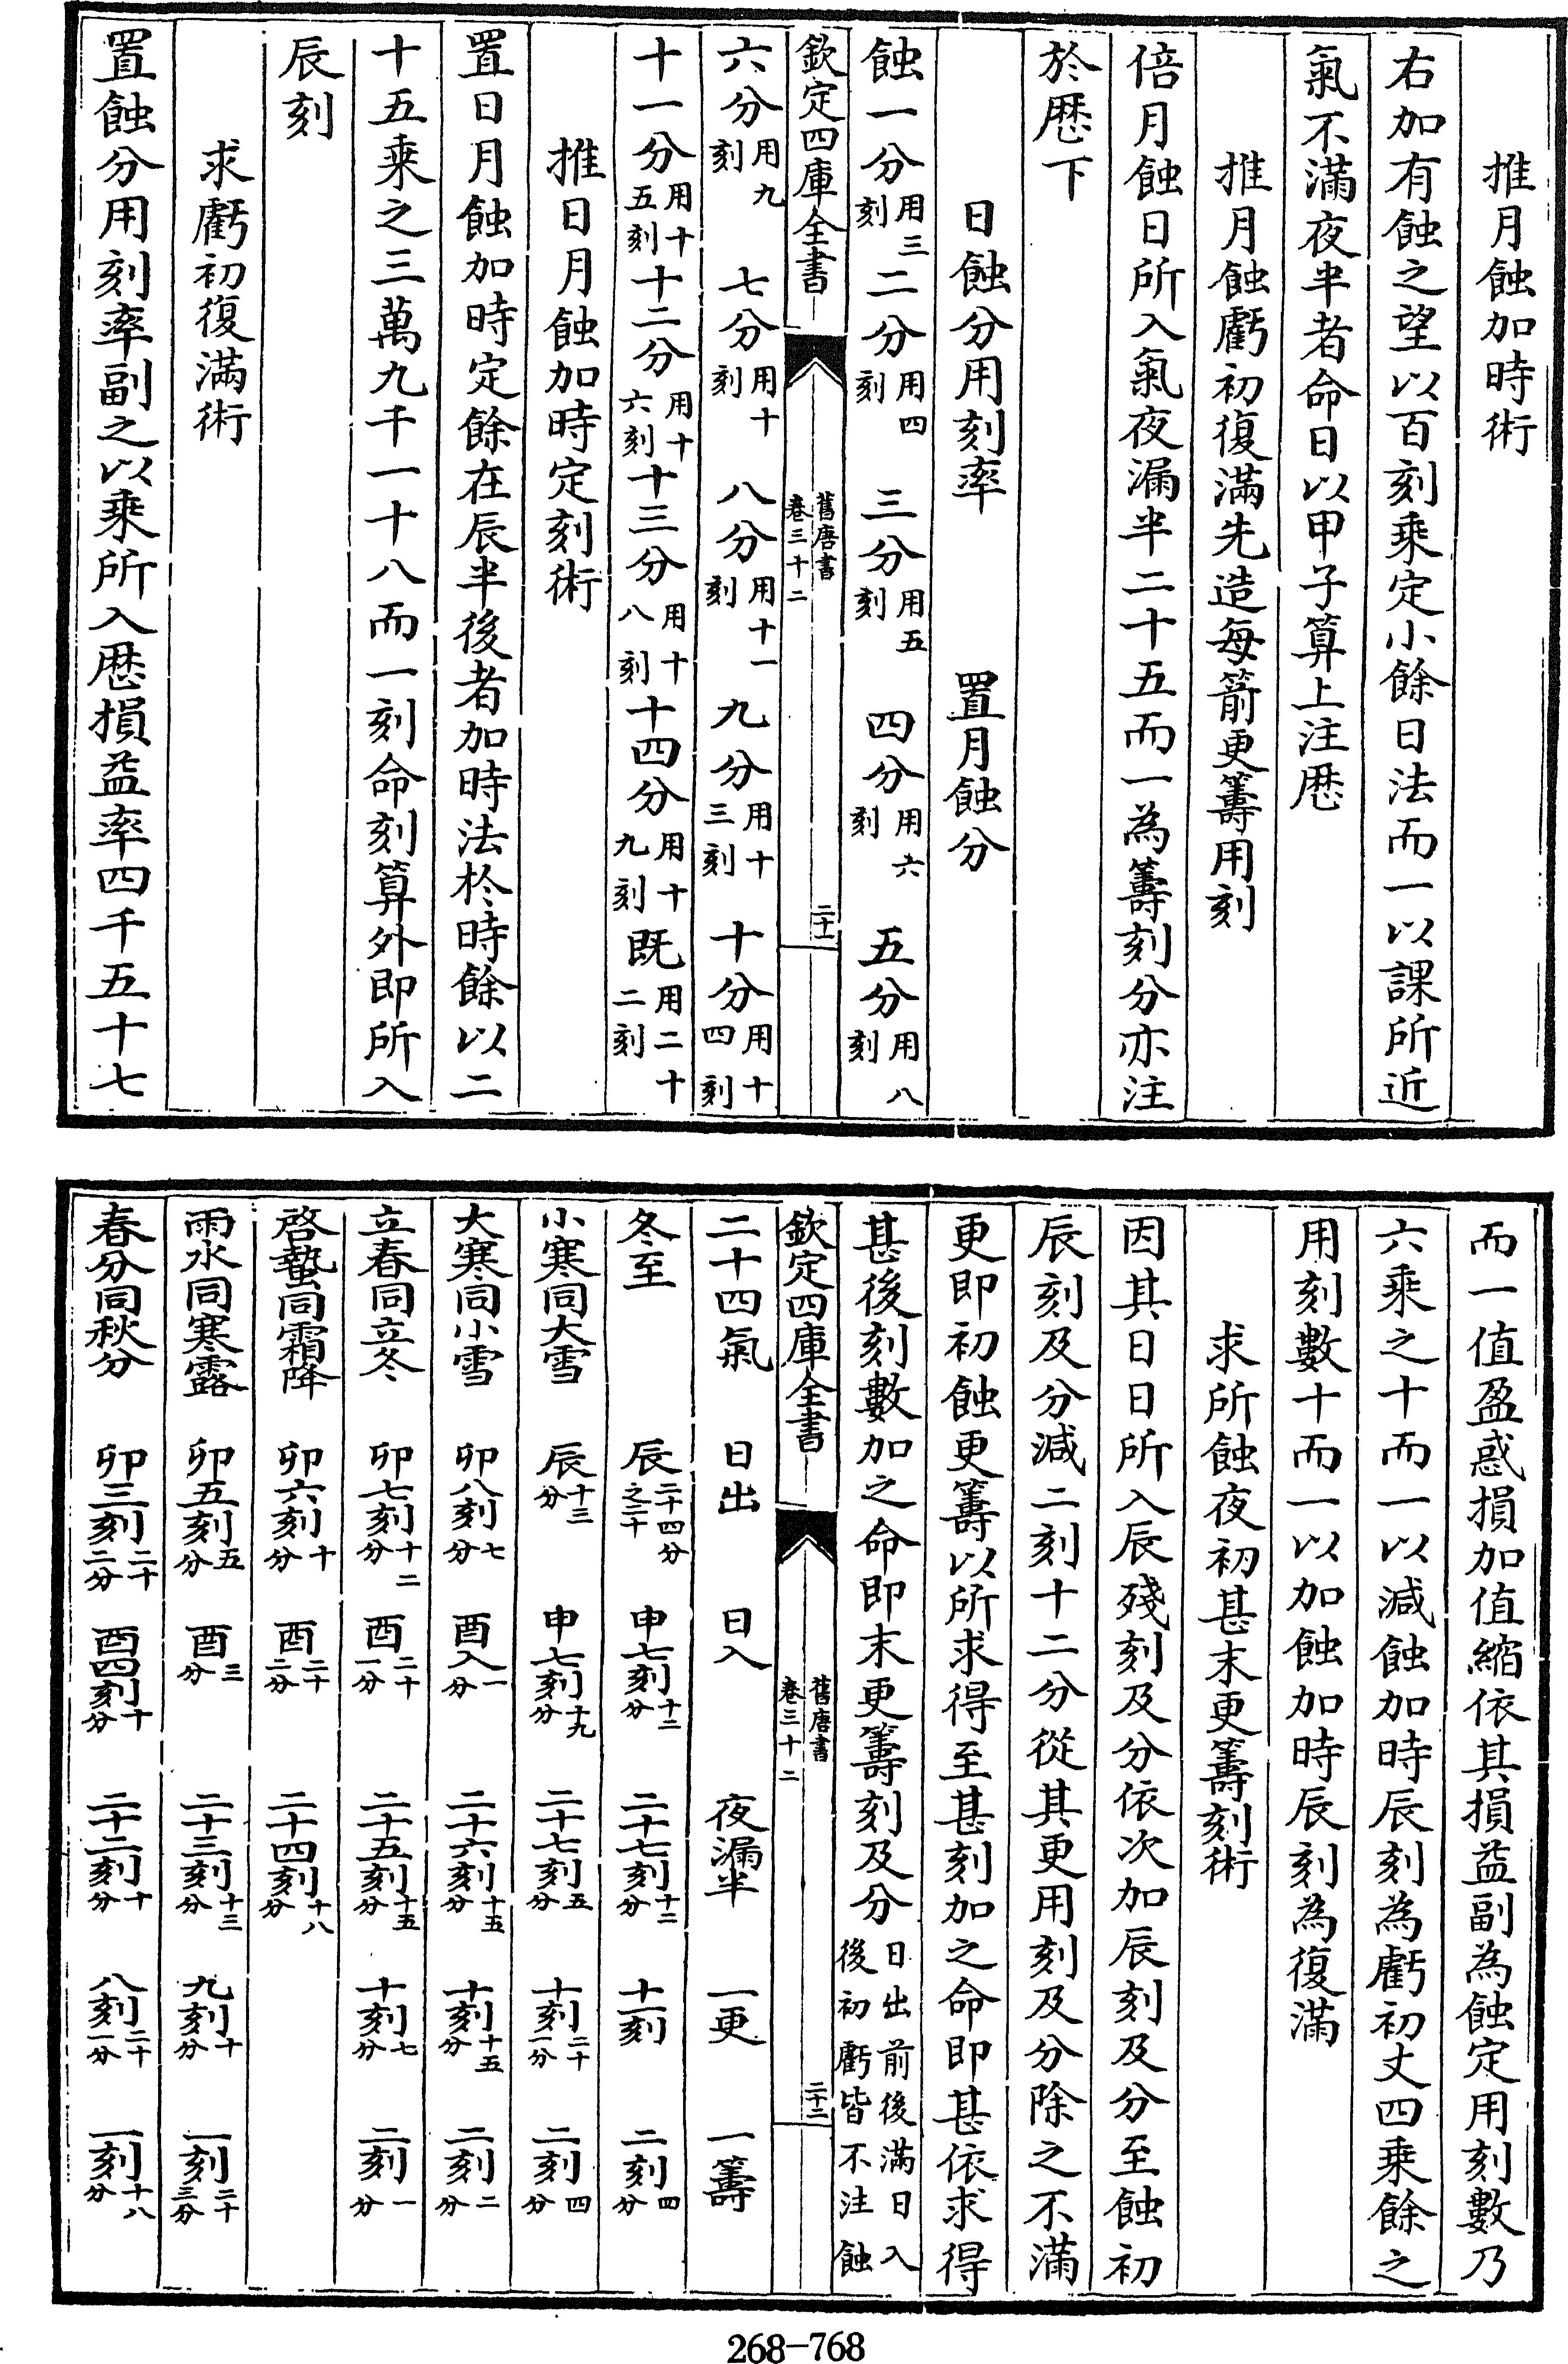 推月蝕加時術
右加有蝕之望以百刻乘定小餘日法而一以課所近
氣不滿夜半者命日以甲子算上注厯
推月蝕虧初復滿先造每箭更籌用刻
倍月蝕日所入氣夜漏半二十五而一為籌刻分亦注
於厯下
日蝕分用刻率　置月蝕分
蝕一分用三刻二分用四刻三分用五刻四分用六刻五分用八刻
欽定四庫全書
舊唐書
卷三十二
二十一
六分用九刻七分用十刻八分用十一刻九分用十三刻十分用十四刻
十一分用十五刻十二分用十六刻十三分用十八刻十四分用十九刻既用二十二刻
推日月蝕加時定刻術
置日月蝕加時定餘在辰半後者加時法於時餘以二
十五乘之三萬九千一十八而一刻命刻算外即所入
辰刻
求虧初復滿術
置蝕分用刻率副之以乘所入厯損益率四千五十七
而一值盈惑損加值縮依其損益副為蝕定用刻數乃
六乘之十而一以減蝕加時辰刻為虧初丈四乘餘之
用刻數十而一以加蝕加時辰刻為復滿
求所蝕夜初甚末更籌刻術
因其日日所入辰殘刻及分依次加辰刻及分至蝕初
辰刻及分減二刻十二分從其更用刻及分除之不滿
更即初蝕更籌以所求得至甚刻加之命即甚依求得
甚後刻數加之命即末更籌刻及分日出前後滿日入後初虧皆不注蝕
欽定四庫全書
舊唐書
卷三十二
二十二
二十四氣　日出　日入　夜漏半　一更　一籌
冬至　辰二十四分之二十　申七刻十二分　二十七刻十二分　十一刻　二刻四分
小寒同大雪　辰十三分　申七刻十九分　二十七刻五分　十刻二十一分　二刻四分
大寒同小雪　卯八刻七分　酉入一分　二十六刻十五分　十刻十五分　二刻二分
立春同立冬　卯七刻十二分　酉二十一分　二十五刻十五分　十刻七分　二刻一分
啓蟄同霜降　卯六刻十分　酉二十二分　二十四刻十八分
雨水同寒露　卯五刻五分　酉三分　二十三刻十三分　九刻十分　一刻二十三分
春分同秋分　卯三刻二十二分　酉四刻十分　二十二刻十分　八刻二十一分　一刻十八分
268-768